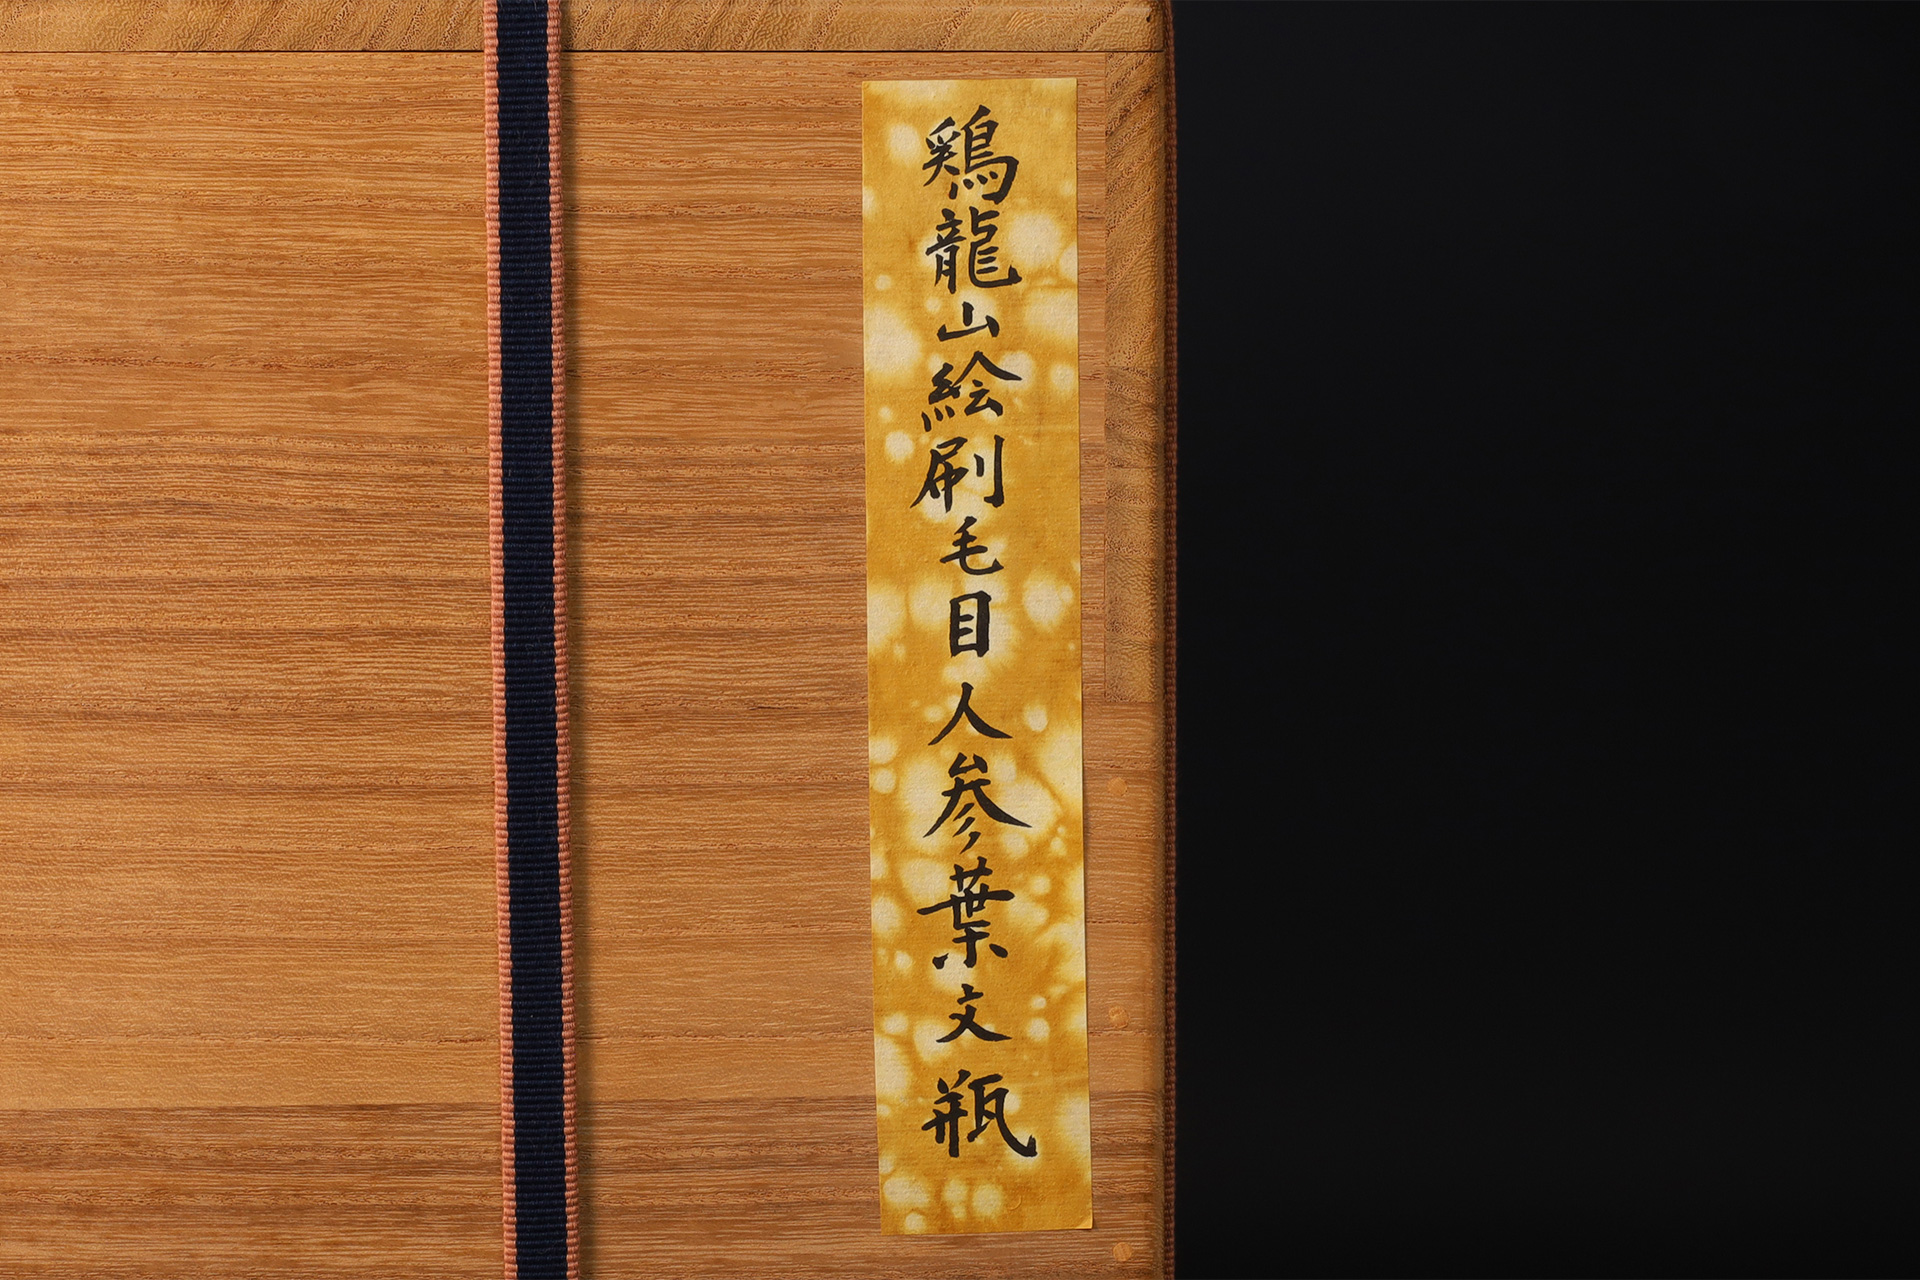 鶏龍山絵刷毛目人参葉文瓶